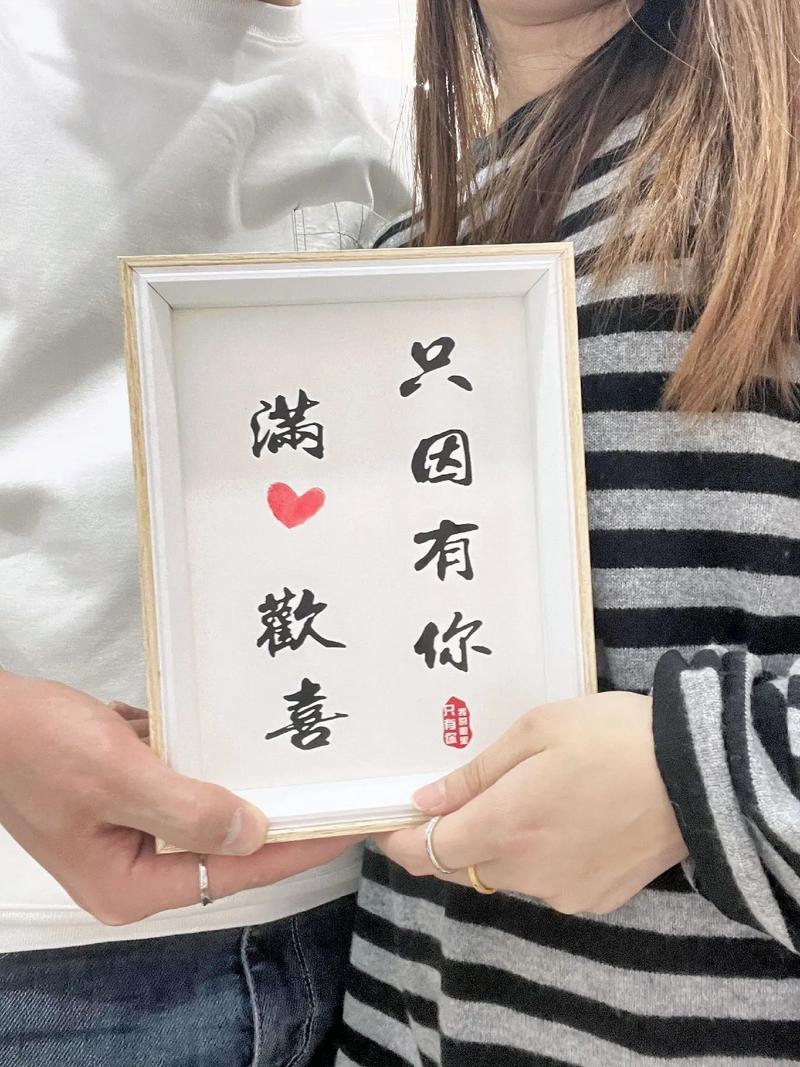 只因有你
滿歡喜
只有你